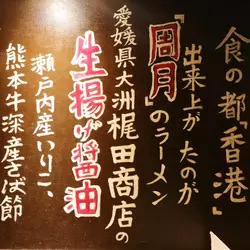 食の都「香港」
出来上がたのが
「周月」のラーメン
愛媛県大洲梶田商店の
生揚げ醤油
瀬戸内産いりこ、
熊本牛深産さば節